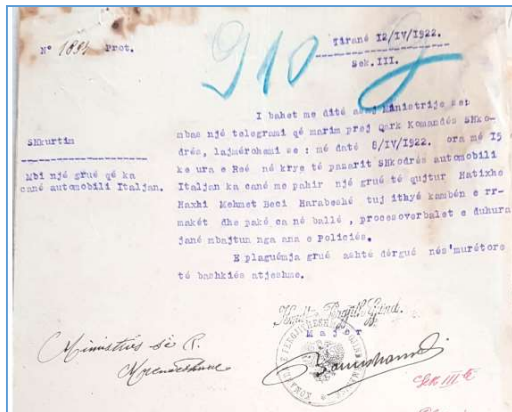 Nº 1894 Prot.
Tiranë 12/IV/1922.
Sek. III.
910
SHkurtim
Mbi një grue që ka
çanë automobili Italjan.
I bahet me ditë asaj Ministrije se:
mbas një telegrami që marim prej Qark Komandës SHko-
drës, lajmërohemi se : më datë 8/IV/1922. ora më 15
ke ura e Reë në krye të pazarit SHkodrës automobili
Italjan ka çanë me pahir një gruë të qujtur Hatixho
Haxhi Mehmet Beci Harabeshë tuj ithyë kambën e rr-
makët dhe pakë ca në ballë , procesoverbalet e duhura
janë mbajtun nga ana e Policiës.
E plaguëmja gruë ashtë dërguë nës'murëtore
të bashkiës atjeshme.
Major
Ministriës së P.
Mrendëshme
Sek III të